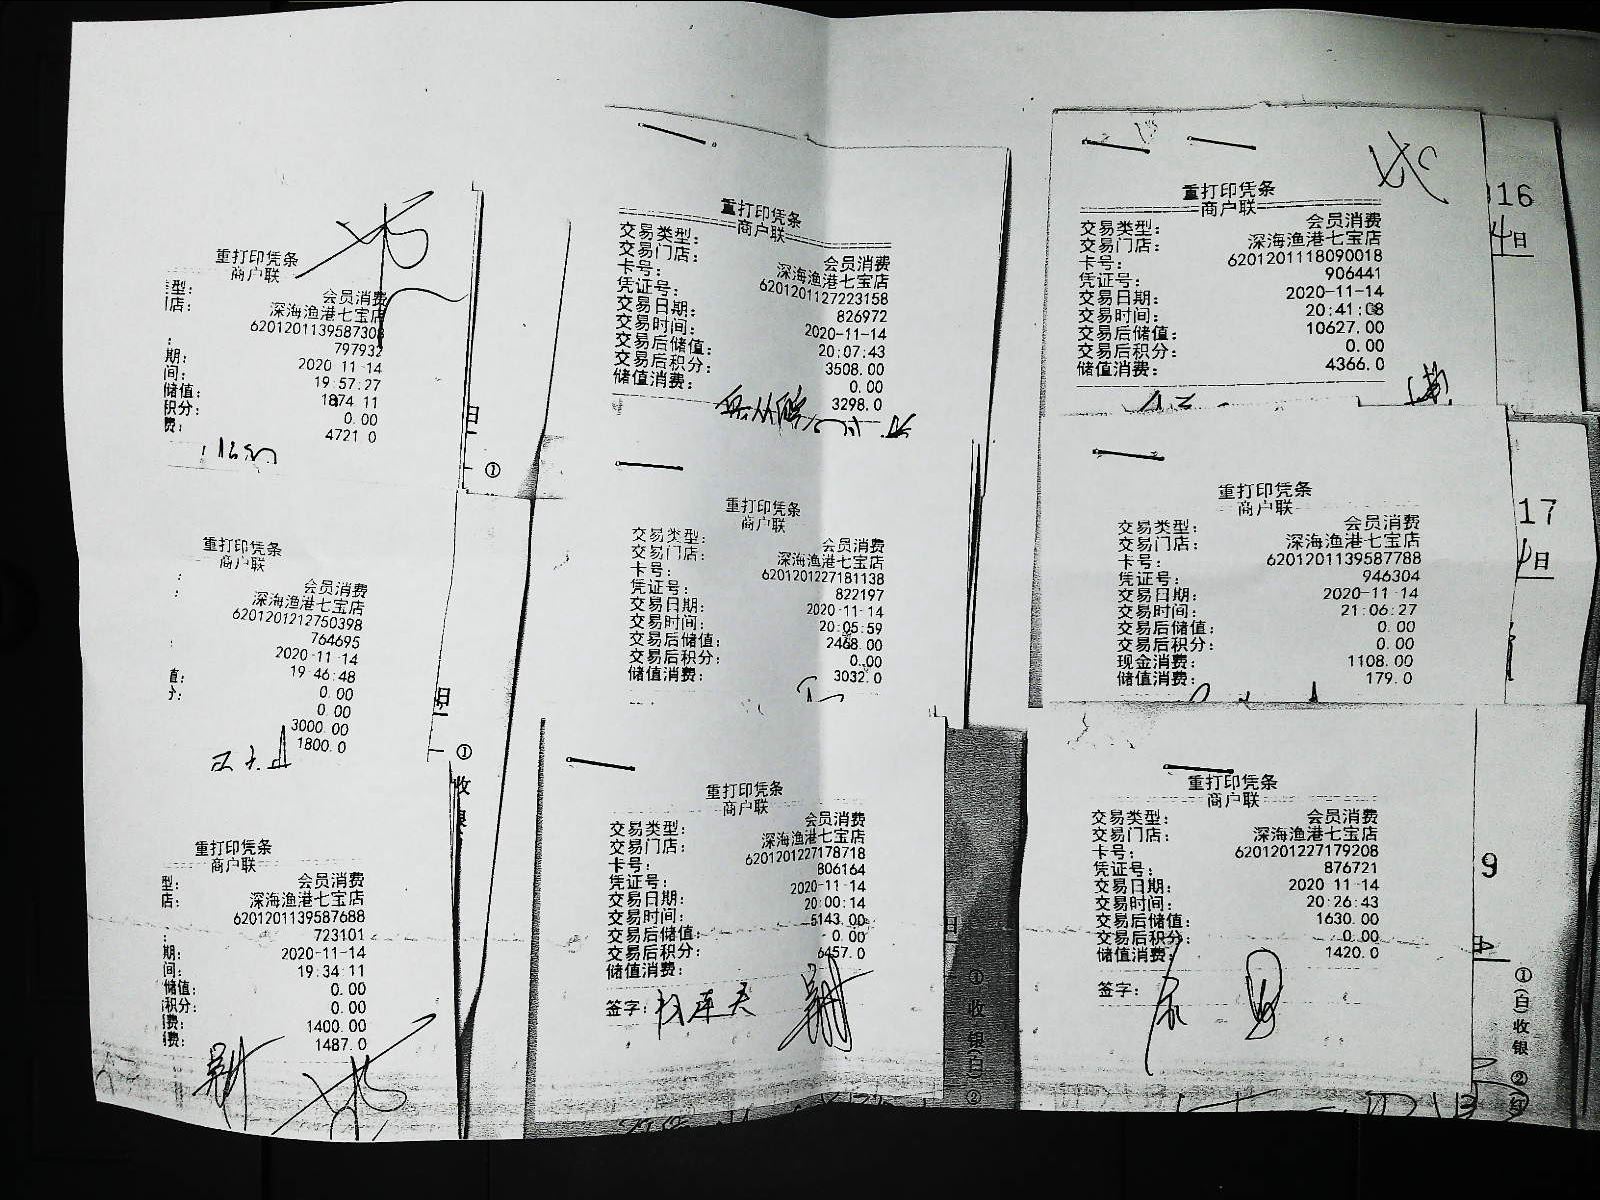 重打印凭条
商户联
型:
会员消费
店:
深海渔港七宝店
6201201139587308
:
797932
期:
2020-11-14
间:
19:57:27
储值:
1874.11
积分:
0.00
费:
4721.0
日
①
重打印凭条
商户联
:
会员消费
:
深海渔港七宝店
6201201212750398
:
764695
2020-11-14
19:46:48
值:
0.00
分:
0.00
3000.00
1800.0
日
①
收
银
重打印凭条
商户联
型:
会员消费
店:
深海渔港七宝店
6201201139587688
:
723101
期:
2020-11-14
间:
19:34:11
储值:
0.00
积分:
0.00
费:
1400.00
费:
1487.0
重打印凭条
商户联
交易类型:
会员消费
交易门店:
深海渔港七宝店
卡号:
6201201127223158
凭证号:
826972
交易日期:
2020-11-14
交易时间:
20:07:43
交易后储值:
3508.00
交易后积分:
0.00
储值消费:
3298.0
重打印凭条
商户联
交易类型:
会员消费
交易门店:
深海渔港七宝店
卡号:
6201201227181138
凭证号:
822197
交易日期:
2020-11-14
交易时间:
20:05:59
交易后储值:
2468.00
交易后积分:
0.00
储值消费:
3032.0
重打印凭条
商户联
交易类型:
会员消费
交易门店:
深海渔港七宝店
卡号:
6201201227178718
凭证号:
806164
交易日期:
2020-11-14
交易时间:
20:00:14
交易后储值:
5143.00
交易后积分:
0.00
储值消费:
6457.0
签字:
日
①
收
银
(白)
②
重打印凭条
商户联
交易类型:
会员消费
交易门店:
深海渔港七宝店
卡号:
6201201118090018
凭证号:
906441
交易日期:
2020-11-14
交易时间:
20:41:08
交易后储值:
10627.00
交易后积分:
0.00
储值消费:
4366.0
16
4日
重打印凭条
商户联
交易类型:
会员消费
交易门店:
深海渔港七宝店
卡号:
6201201139587788
凭证号:
946304
交易日期:
2020-11-14
交易时间:
21:06:27
交易后储值:
0.00
交易后积分:
0.00
现金消费:
1108.00
储值消费:
179.0
17
日
重打印凭条
商户联
交易类型:
会员消费
交易门店:
深海渔港七宝店
卡号:
6201201227179208
凭证号:
876721
交易日期:
2020-11-14
交易时间:
20:26:43
交易后储值:
1630.00
交易后积分:
0.00
储值消费:
1420.0
签字:
9
①
(白)
收
银
②
(红)